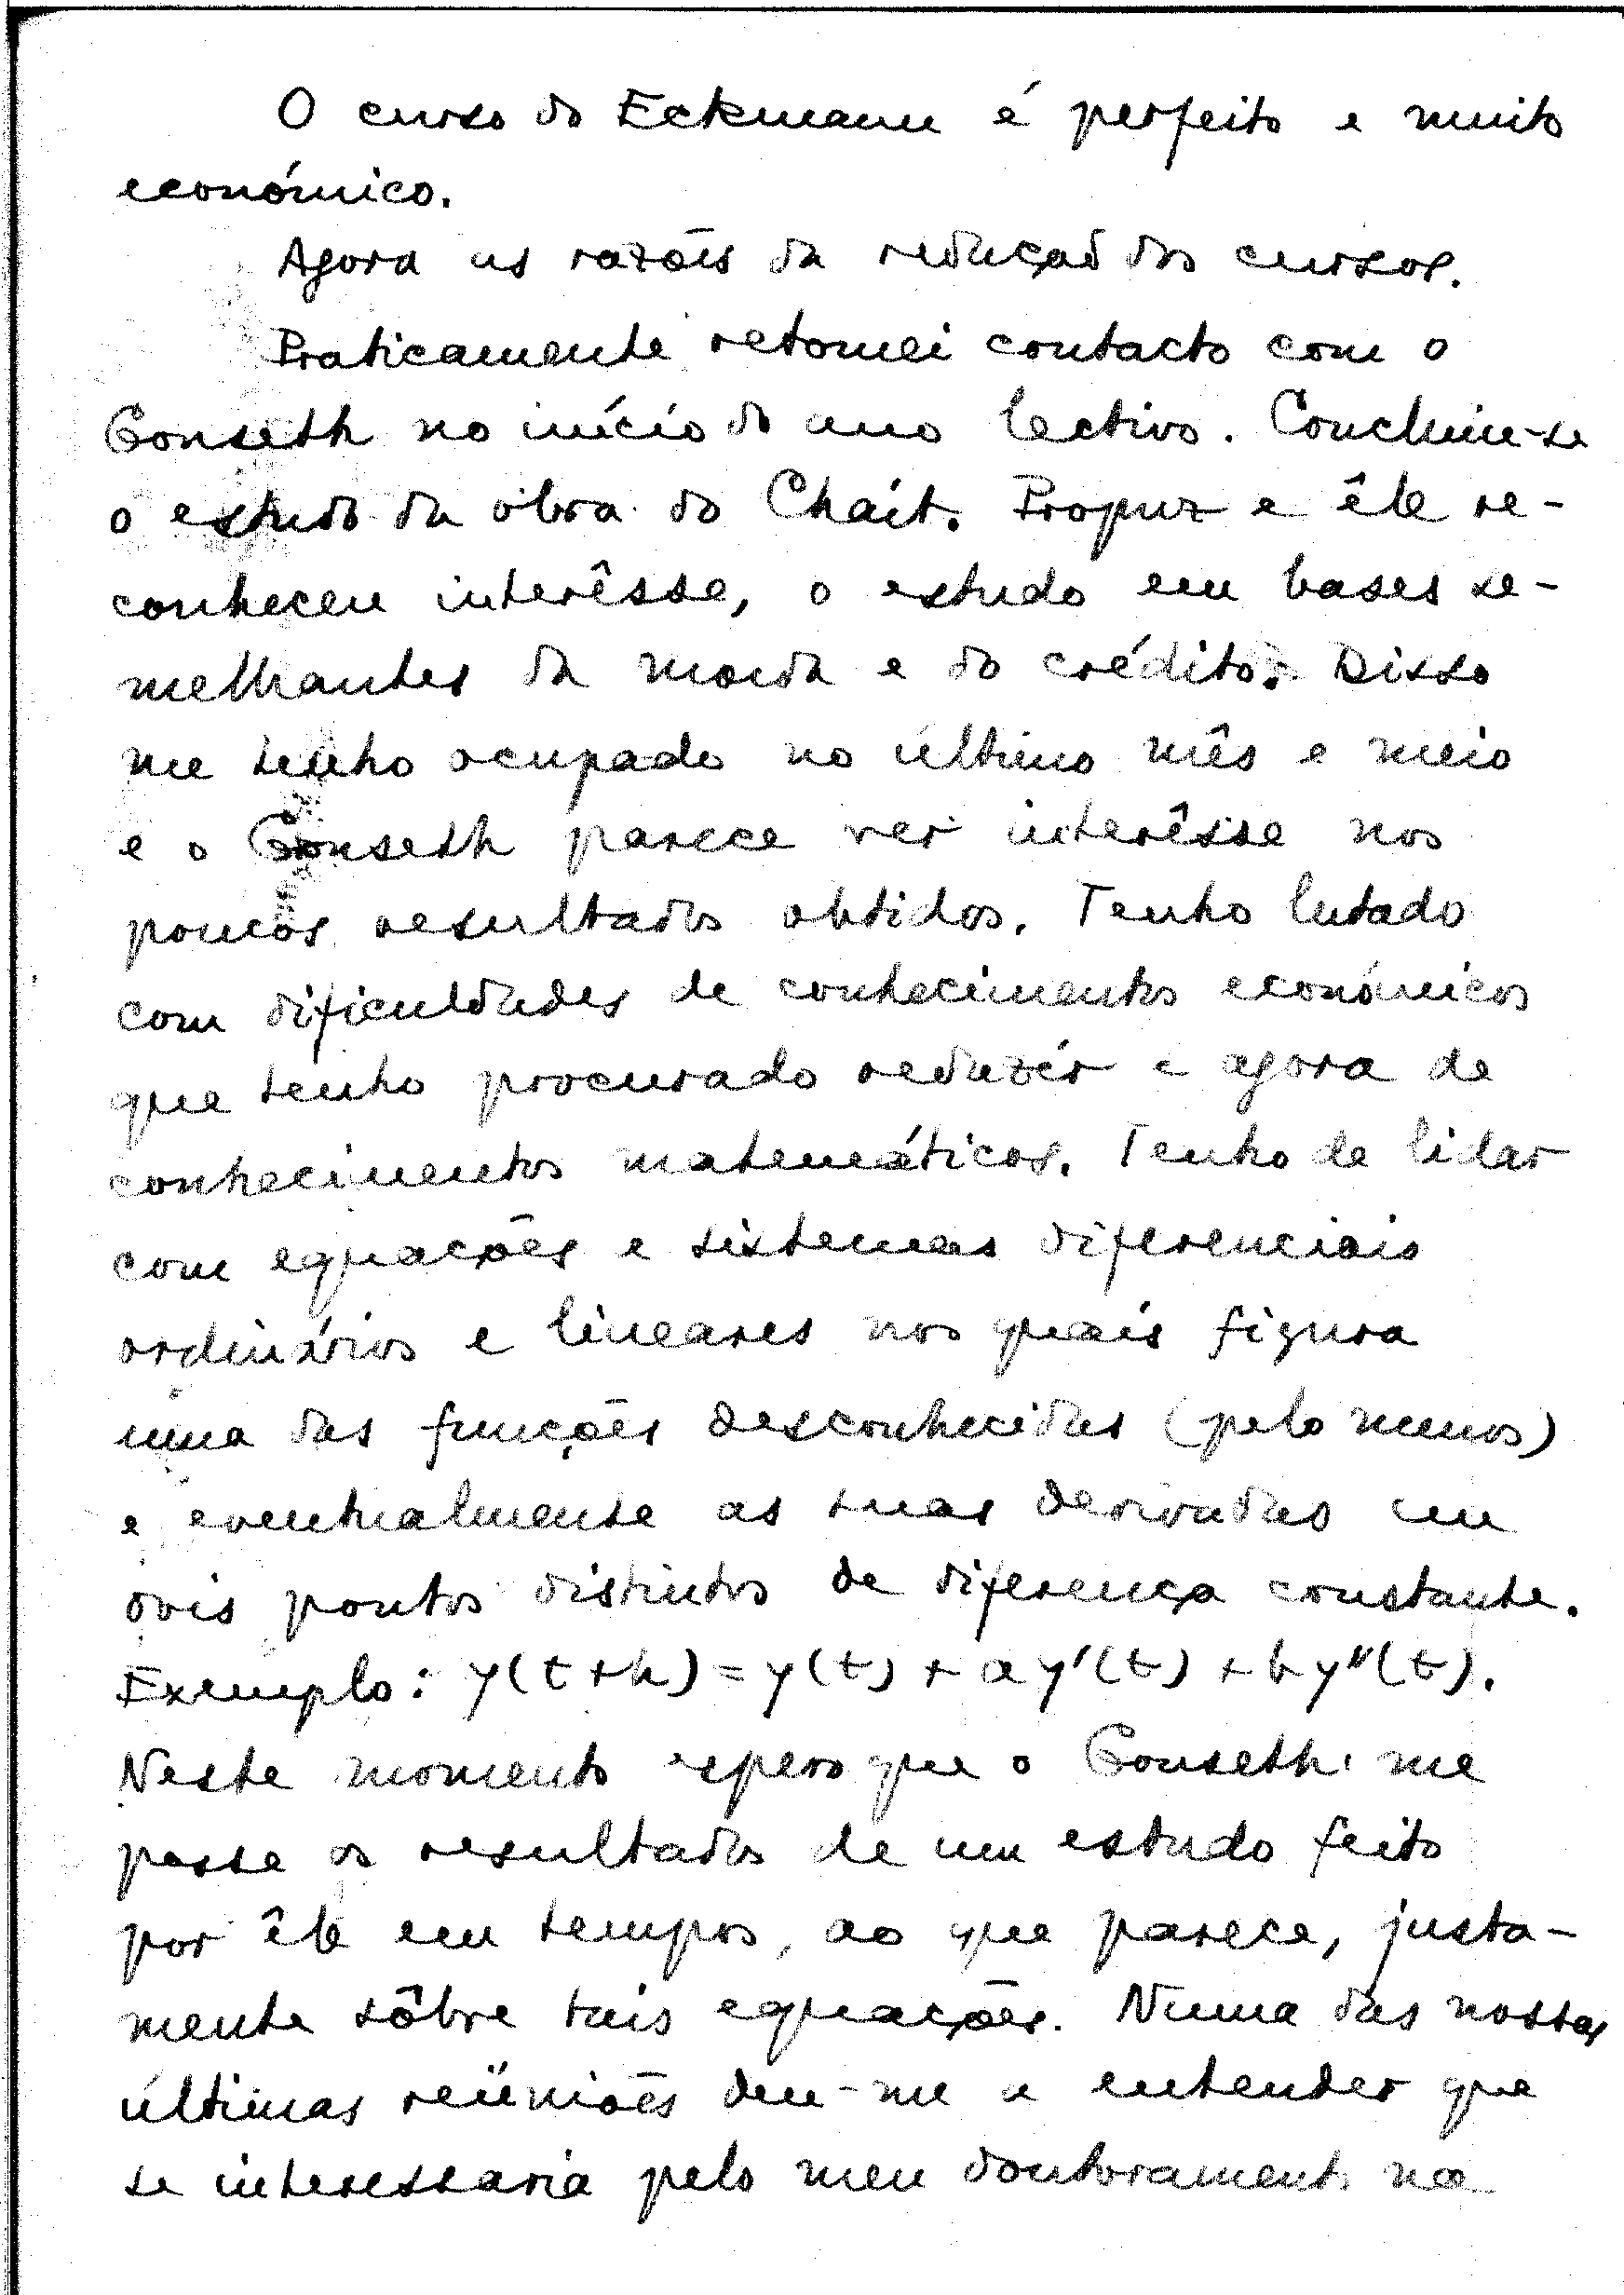 O curso do Eckmann é perfeito e muito
económico.
Agora as razões da redução dos cursos.
Praticamente retomei contacto com o
Gonseth no início do ano lectivo. Concluiu-se
o estudo da obra do Chait. Propuz e êle re-
conheceu interêsse, o estudo em bases se-
melhantes da moeda e do crédito. Disso
me tenho ocupado no último mês e meio
e o Gonseth parece ver interêsse nos
poucos resultados obtidos. Tenho lutado
com dificuldades de conhecimentos económicos
que tenho procurado reduzir e agora de
conhecimentos matemáticos. Tenho de lidar
com equações e sistemas diferenciais
ordinários e lineares nos quais figura
uma das funções desconhecidas (pelo menos)
e eventualmente as suas derivadas em
dois pontos distintos de diferença constante.
Exemplo: y(t+h) = y(t) + a y'(t) + b y''(t).
Neste momento espero que o Gonseth me
passe os resultados de um estudo feito
por êle em tempos, ao que parece, justa-
mente sôbre tais equações. Numa das nossas
últimas reüniões deu-me a entender que
se interessaria pelo meu doutoramento na